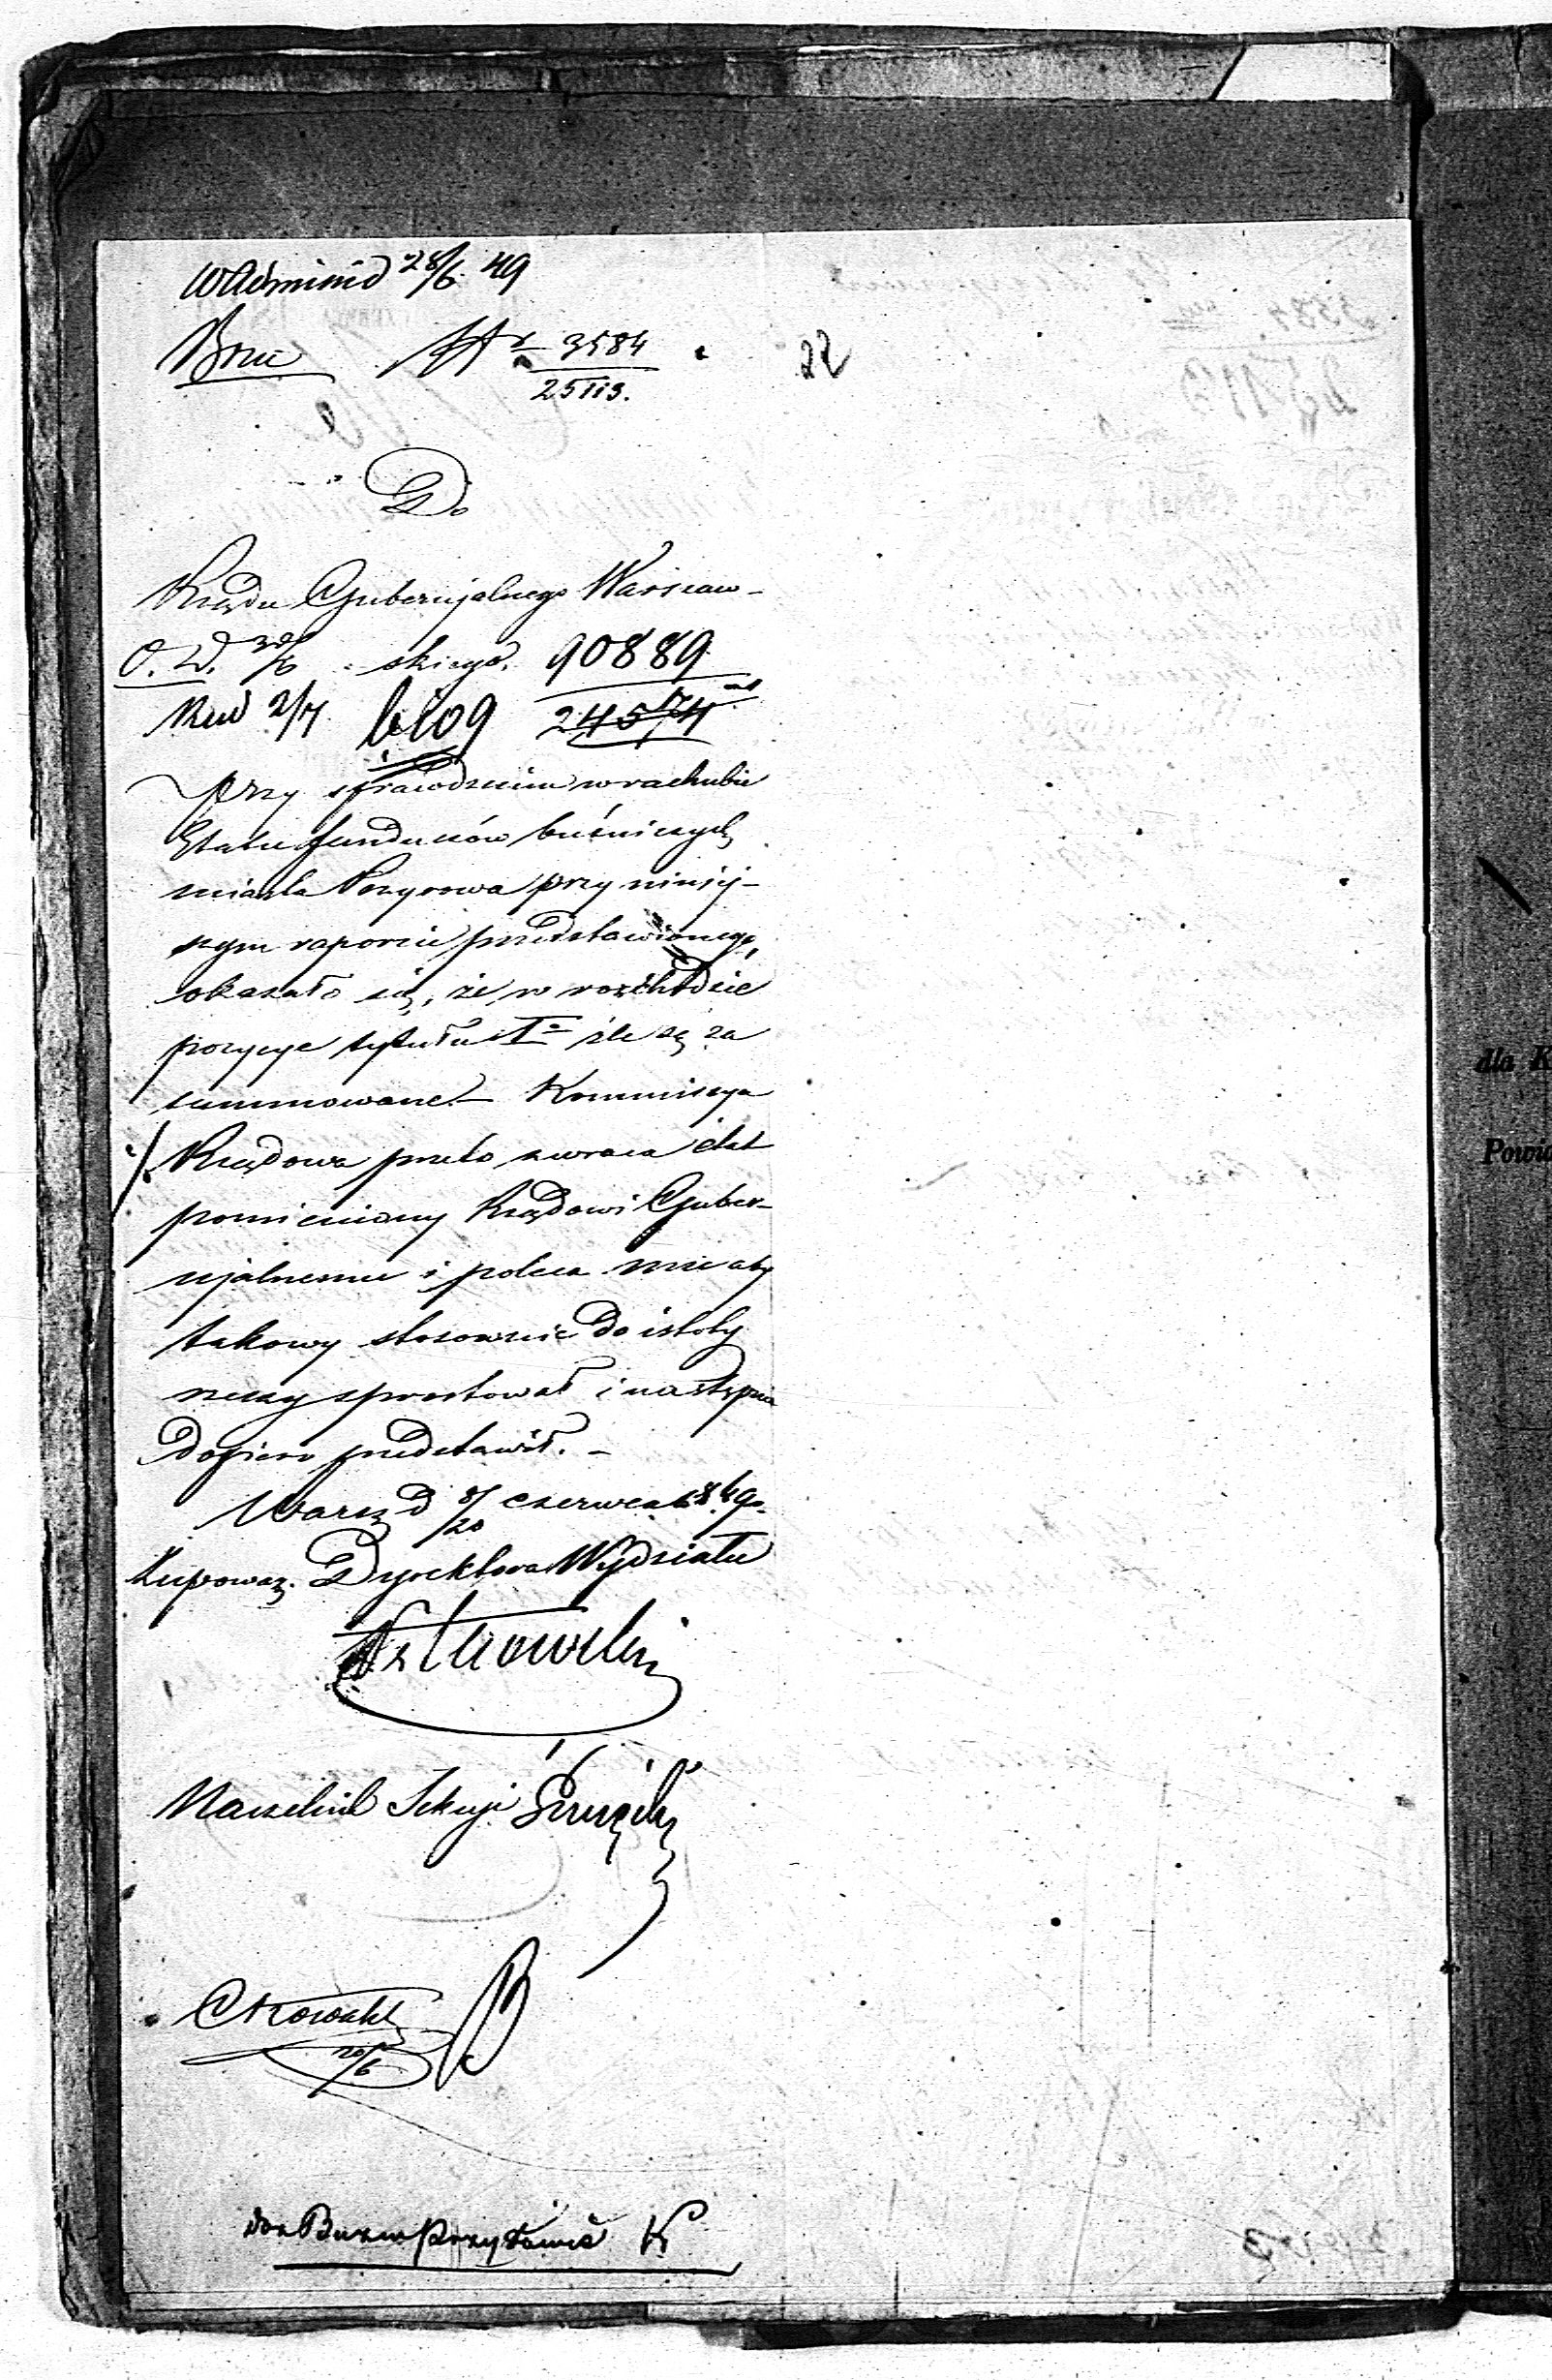 WAdminid 28/6 49
Bru № 3584
25113.
22
Do
Rządu Gubernjalnego Warszaw-
O. W. 30/6 skiego. 90889
Rud 2/7 6109 24574
przy sprawdzeniu w rachubie
Etatu funduszów bużniczych
miasta Przyrowa przy niniej-
szym raporcie przedstawionego,
okazało się, że w rozchodzie
pozycye tytułu I° źle są za
summowane. - Kommissya
Rządowa przeto zwraca etat
pomieniony Rządowi Guber-
njalnemu i poleca mu aby
takowy stosownie do istoty
rzeczy sprostował i następnie
dopiero przedstawił. -
Warsz d 8/20 czerwca 1849 r.
Z upoważ. Dyrektora Wydziału
Naczelnik Sekcyi
20/6
dla K
Powia